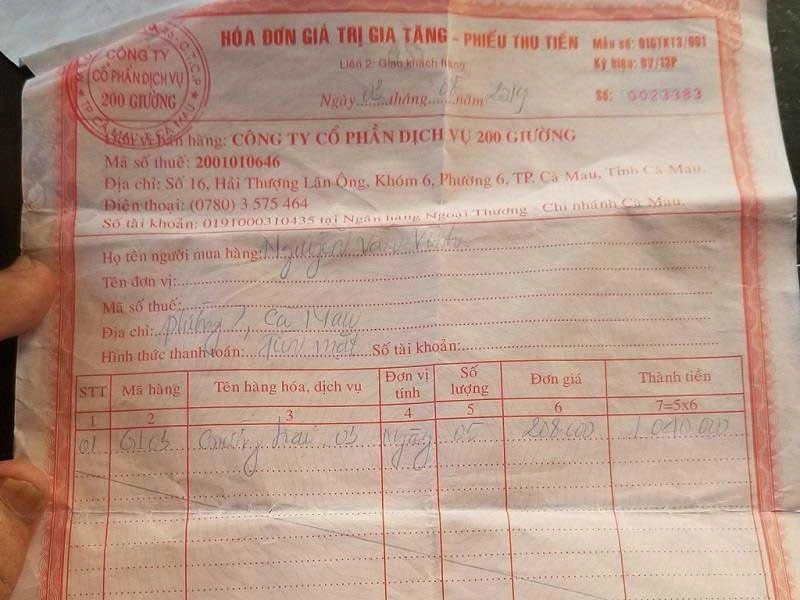 CÔNG TY
CỔ PHẦN DỊCH VỤ
200 GIƯỜNG
HÓA ĐƠN GIÁ TRỊ GIA TĂNG - PHIẾU THU TIỀN
Liên 2: Giao khách hàng
Ngày 03 tháng 08 năm 2019
Mẫu số: 01GTKT3/001
Ký hiệu: DV/13P
Số: 0023383
Đơn vị bán hàng: CÔNG TY CỔ PHẦN DỊCH VỤ 200 GIƯỜNG
Mã số thuế: 2001010646
Địa chỉ: Số 16, Hải Thượng Lãn Ông, Khóm 6, Phường 6, TP. Cà Mau, Tỉnh Cà Mau.
Điện thoại: (0780) 3 575 464
Số tài khoản: 0191000310435 tại Ngân hàng Ngoại Thương - Chi nhánh Cà Mau.
Họ tên người mua hàng: Nguyễn Văn
Tên đơn vị:
Mã số thuế:
Địa chỉ: phường 7, Cà Mau
Hình thức thanh toán: tiền mặt Số tài khoản:
STT Mã hàng Tên hàng hóa, dịch vụ Đơn vị tính Số lượng Đơn giá Thành tiền
1 2 3 4 5 6 7=5x6
01 G103 03 Ngày 05 208.000 1.040.000